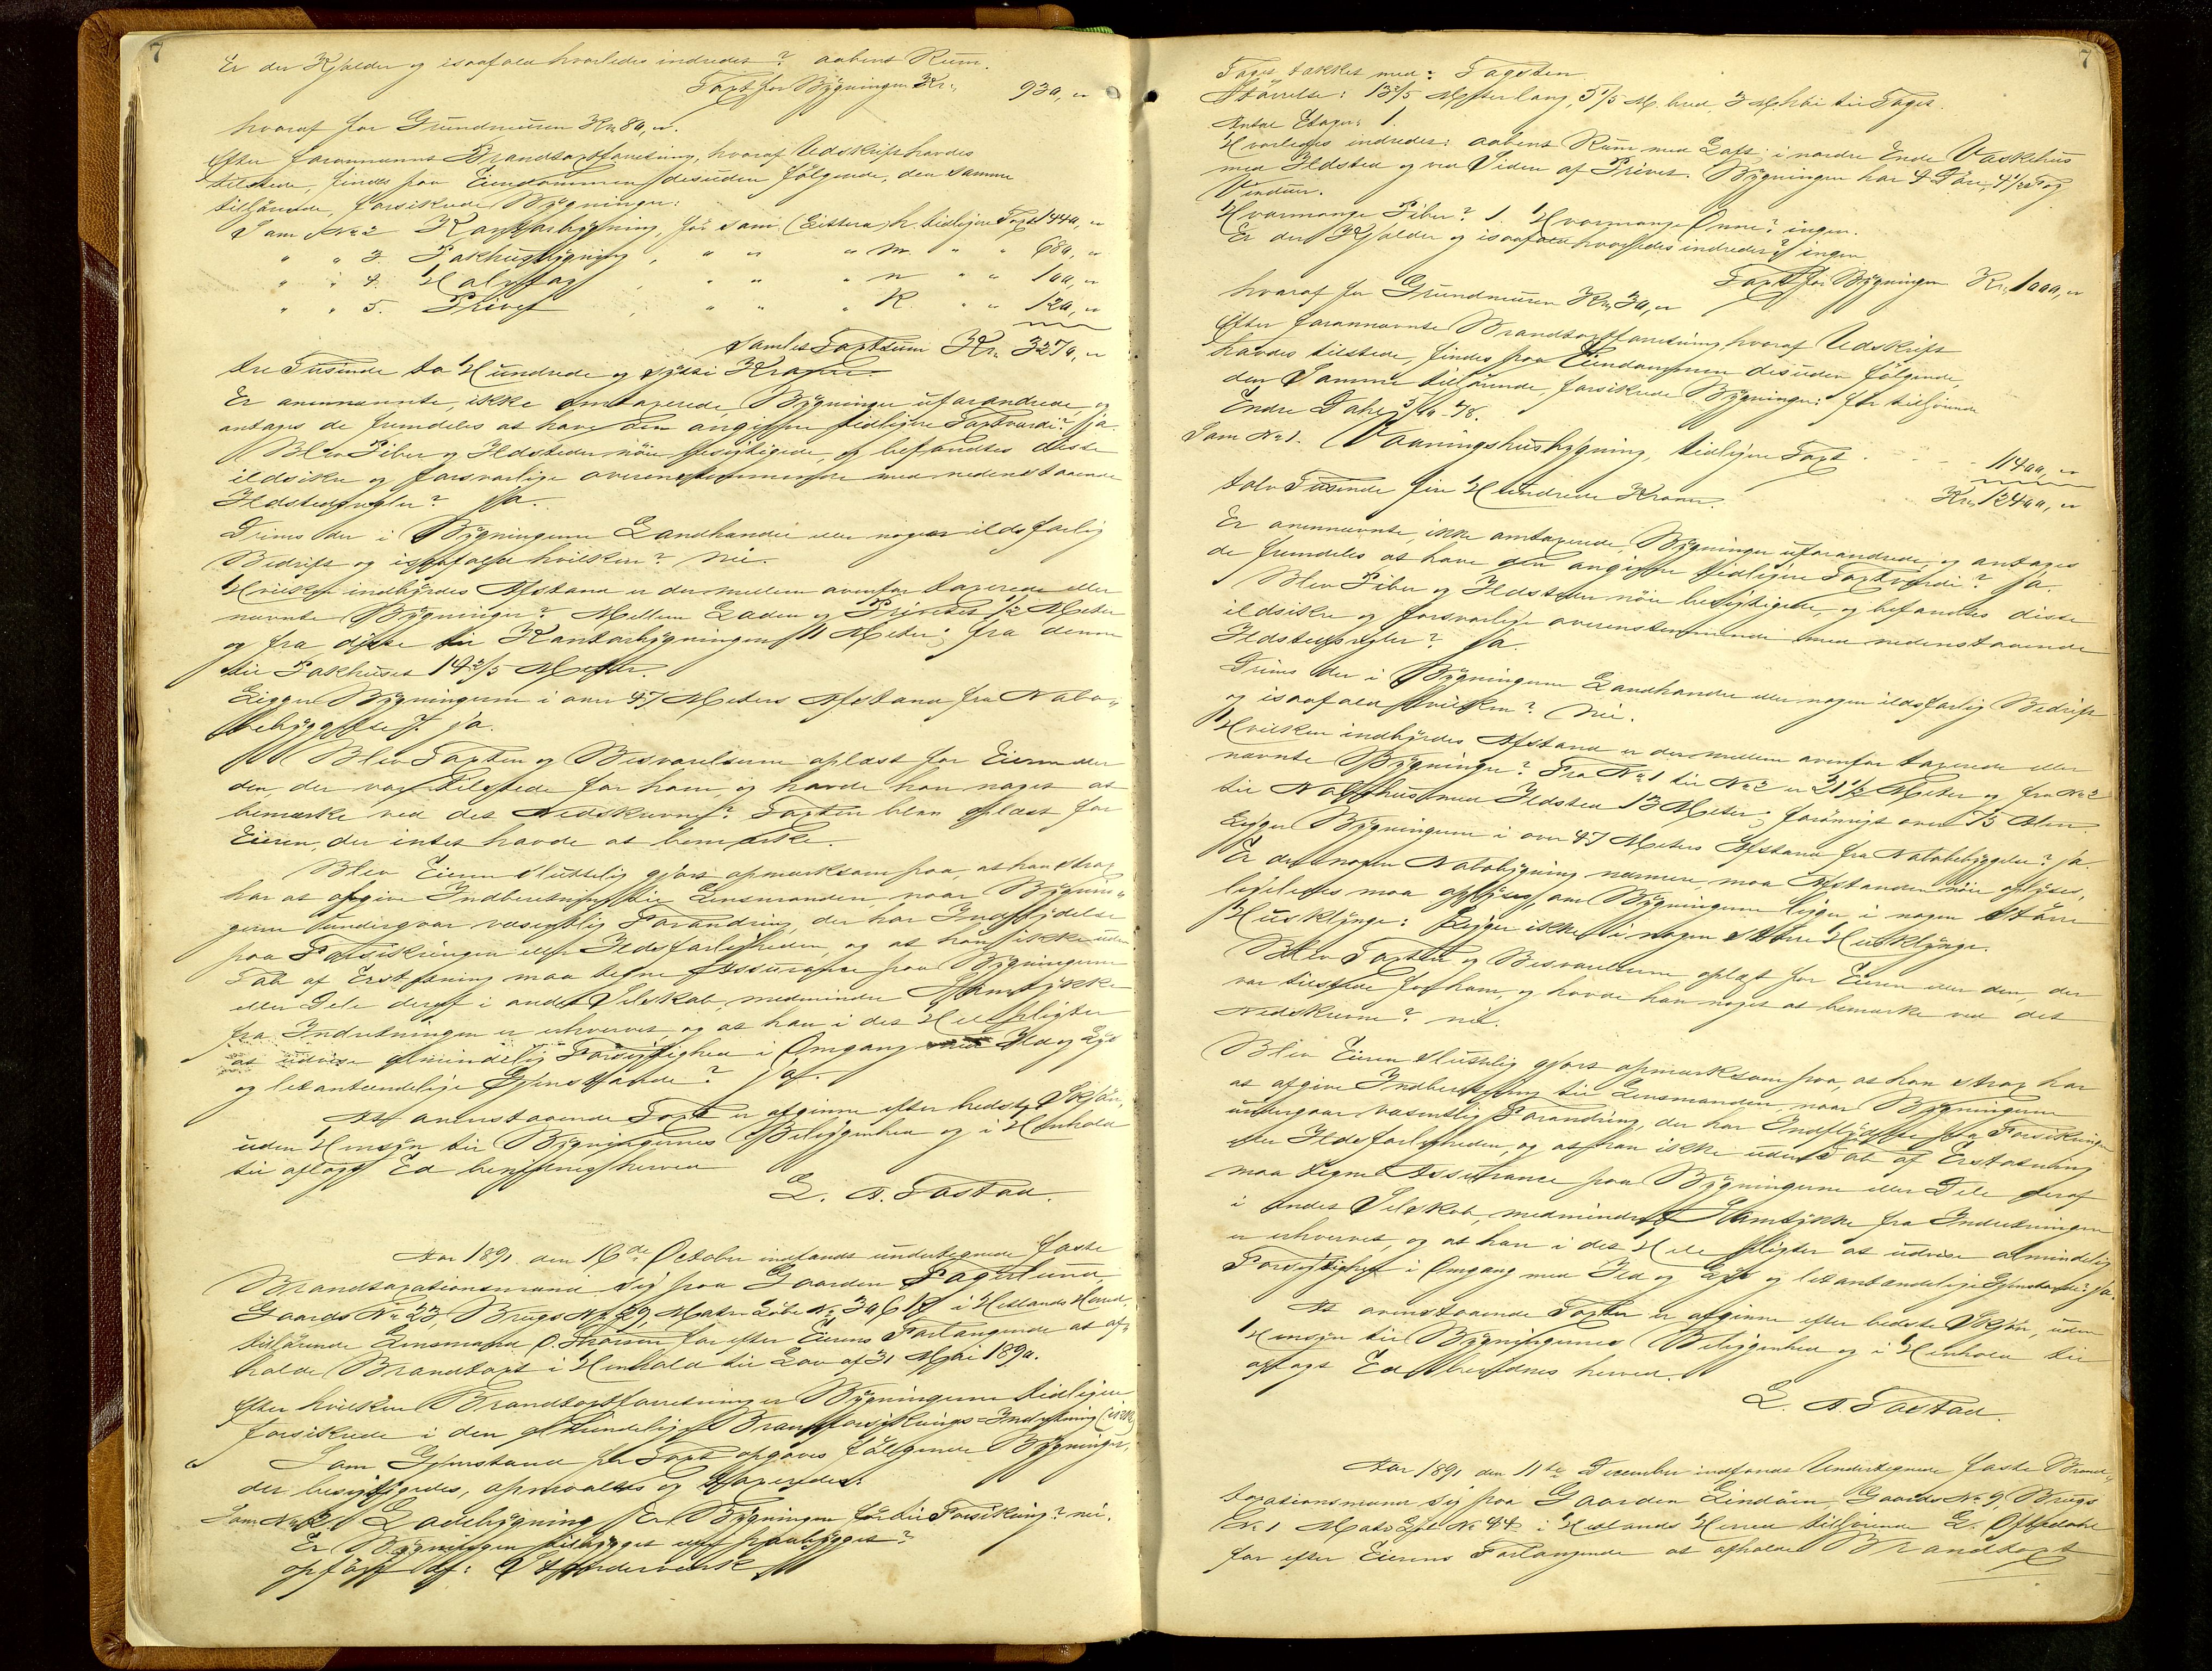 7
Er der Kjelder og isaafald hvorledes indredet? aabent Rum.
Taxt for Bygningen Kr. 930, "
hvoraf for Grundmuren Kr. 80, ".
Efter forannævnte Brandtaxtforretning, hvoraf Udskrift havdes
tilstede, findes paa Eiendommen desuden følgende, den samme
tilhørende, forsikrede Bygninger:
Som No 2 Kontorbygning, før som (Littera) h. tidligere Taxt 1440, "
" " 3. Pakhusbygning, " " " m. " " 680, "
" " 4. Halvtag, " " " n " " 100, "
" " 5. Privet, " " " K. " " 120, "
Samlet Taxtsum Kr. 3270, "
tre Tusinde to Hundrede og sytti Kroner.
Er ovennævnte, ikke omtaxerede Bygninger uforandrede, og
antages de fremdeles at have den angivne tidligere Taxtværdi? ja.
Blev Piber og Ildsteder nöie besigtigede, og befandtes disse
ildsikre og forsvarlige overensstemmende med nedenstaaende
Ildstedsregler? Ja.
Drives der i Bygningerne Landhandel eller nogen ildsfarlig
Bedrift og isaafald hvilken? Nei.
Hvilken indbyrdes Afstand er der mellem ovenfor taxerede eller
nævnte Bygninger? Mellem Laden og Privetet 1/2 Meter
og fra disse til Kontorbygningen 11 Meter; fra denne
til Pakhuset 14 2/5 Meter.
Ligger Bygningerne i over 47 Meters Afstand fra Nabo-
bebyggelse? ja.
Blev Taxten og Besvarelserne oplæst for Eieren eller
den, der var tilstede for ham, og havde han noget at
bemærke ved det Nedskrevne? Taxten blev oplæst for
Eieren, der intet havde at bemærke.
Blev Eieren sluttelig gjort opmærksom paa, at han strax
har at afgive Indberetning til Lensmanden, naar Bygnin-
gerne undergaar væsentlig Forandring, der har Indflydelse
paa Forsikringen eller Ildsfarligheden, og at han ikke uden
Tab af Erstatning maa tegne Assurance paa Bygningerne
eller Dele deraf i andet Selskab, medmindre Samtykke
fra Indretningen er erhvervet, og at han i det Hele pligter
at udvise almindelig Forsigtighed i Omgang med Ild og Lys
og letantændelige Gjenstande? Ja.
At ovenstaaende Taxt er afgiven efter bedste Skjön,
uden Hensyn til Bygningernes Beliggenhed og i Henhold
til aflagt Ed bevidnes herved
L. A. Tastad.
Aar 1891 den 16de October indfandt undertegnede faste
Brandtaxationsmand sig paa Gaarden Fagerlund,
Gaards No 23, Brugs No 29, Matr. Löbe No 306 17 i Hetlands Herred,
tilhørende Lensmand O. for efter Eierens Forlangende at af-
holde Brandtaxt i Henhold til Lov af 31 Mai 1890.
Efter hvilken Brandtaxtforretning er Bygningerne tidligere
forsikrede i den almindelige Brandforsikrings-Indretning
Som Gjenstand for Taxt opgaves følgende Bygninger,
der besigtigedes, opmaaltes og taxeredes:
Som No 2. Ladebygning. Er Bygningen før til Forsikring? nei.
Er Bygningen tilbygget eller paabygget?
opført af: Stenderværk
7
Taget tækket med: Tagsten.
Störrelse: 13 2/5 Meter lang, 5 1/5 M. bred, 3 M. høi til Taget.
Antal Etager: 1.
Hvorledes indredet: aabent Rum med Loft; i nordre Ende Vaskehus
med Ildsted og ved Siden af Privet. Bygningen har 4 Döre, 4 1/2 Fag
Vinduer.
Hvormange Piber? 1. Hvormange Ovne? ingen.
Er der Kjelder og isaafald hvorledes indredet? ingen
Taxt for Bygningen Kr. 1000, "
hvoraf for Grundmuren Kr. 30, "
Efter forannævnte Brandtaxtforretning, hvoraf Udskrift
havdes tilstede, findes paa Eiendommen desuden følgende,
den Samme tilhørende, forsikrede Bygninger: før tilhørende
Endre Dahl
Som No 1. Vaaningshusbygning, tidligere Taxt 11400, "
tolv Tusinde fire Hundrede Kroner. Kr. 12400, "
Er ovennævnte, ikke omtaxerede Bygninger uforandrede, og antages
de fremdeles at have den angivne tidligere Taxtværdi? Ja.
Blev Piber og Ildsteder nöie besigtigede, og befandtes disse
ildsikre og forsvarlige overensstemmende med nedenstaaende
Ildstedsregler? Ja.
Drives der i Bygningerne Landhandel eller nogen ildsfarlig Bedrift
og isaafald hvilken? Nei.
Hvilken indbyrdes Afstand er der mellem ovenfor taxerede eller
nævnte Bygninger? Fra No 1 til No 2 er 31 1/2 Meter og fra No 2
til med Ildsted 13 Meter; forövrigt over 75 Alen.
Ligger Bygningerne i over 47 Meters Afstand fra Nabobebyggelse? ja.
Er der nogen Nabobygning nærmere, maa Afstanden nöie oplyses,
ligeledes maa oplyses, om Bygningerne ligger i nogen större
Husklynge: Ligger ikke i nogen större Husklynge.
Blev Taxten og Besvarelserne oplæst for Eieren eller den, der
var tilstede for ham, og havde han noget at bemærke ved det
Nedskrevne? nei.
Blev Eieren sluttelig gjort opmærksom paa, at han strax har
at afgive Indberetning til Lensmanden, naar Bygningerne
undergaar væsentlig Forandring, der har Indflydelse paa Forsikringen
eller Ildsfarligheden, og at han ikke uden Tab af Erstatning
maa tegne Assurance paa Bygningerne eller Dele deraf
i andet Selskab, medmindre Samtykke fra Indretningen
er erhvervet, og at han i det Hele pligter at udvise almindelig
Forsigtighed i Omgang med Ild og Lys og letantændelige Gjenstande? ja.
At ovenstaaende Taxter er afgivne efter bedste Skjön, uden
Hensyn til Bygningernes Beliggenhed og i Henhold til
aflagt Ed bevidnes herved.
L. A. Tastad.
Aar 1891 den 11te December indfandt Undertegnede faste Brand-
taxationsmand sig paa Gaarden Lindöen, Gaards No 9, Brugs
No 1 Matr. Löbe No 44 i Hetlands Herred tilhørende L. Oftedahl
for efter Eierens Forlangende at afholde Brandtaxt